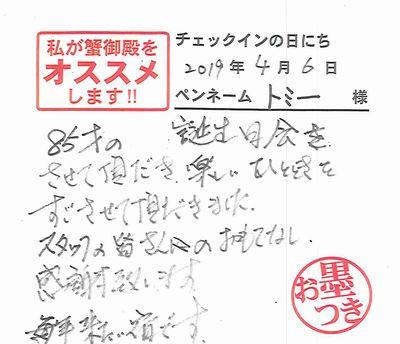 私が蟹御殿を
オススメ
します!!
チェックインの日にち
2019年4月6日
ペンネーム トミー 様
85才の 誕生日会を
させて頂だき 楽しいひとときを
すごさせて頂だきました。
スタッフの皆さんのおもてなし
感謝致します
毎年来たい宿です。
お墨つき